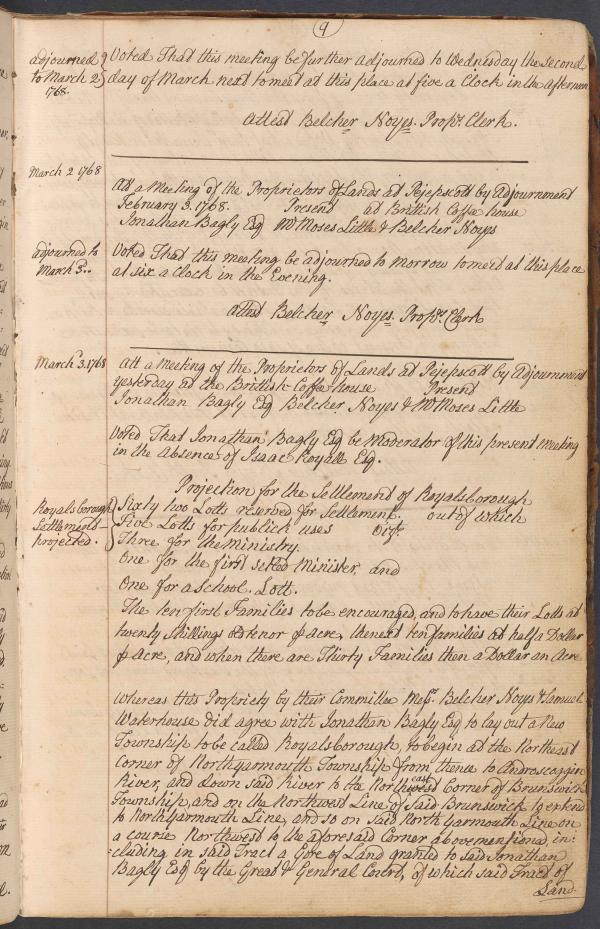 (9)
adjourned
to March 2
1768.
Voted That this meeting be further adjourned to Wednesday the Second
day of March next to meet at this place at five a Clock in the afternoon
attest Belcher Noyes. Propr. Clerk.
March 2 1768
Att a Meeting of the Proprietors of Lands at Pejepscott by Adjournment
February 3. 1768. Present at British Coffee house
Jonathan Bagly Esq Mr Moses Little & Belcher Noyes
adjourned to
March 3..
Voted That this meeting be adjourned to morrow to meet at this place
at six a Clock in the Evening.
attest Belcher Noyes. Proprs. Clerk
March 3. 1768
Att a Meeting of the Proprietors of Lands at Pejepscott by Adjournment
yesterday at the British Coffee house Present
Jonathan Bagly Esq Belcher Noyes & Mr Moses Little
Voted That Jonathan Bagly Esq be Moderator of this present Meeting
in the absence of Isaac Royall Esq.
Projection for the Settlement of Royalsborough
Royalsborough
Settlement
projected.
Sixty two Lotts reserved for Settlement. out of which
Five Lotts for publick uses
Three for the Ministry.
One for the first setled Minister, and
One for a School. Lott.
The ten first Families to be encouraged, and to have their Lotts at
twenty shillings old tenor ⅌ acre, the next ten families at half a Dollar
⅌ Acre, and when there are Thirty Families then a Dollar an Acre
Whereas this Propriety by their Committee Messrs. Belcher Noyes & Samuel
Waterhouse did agree with Jonathan Bagly Esq to lay out a New
Township to be called Royalsborough, to begin at the Northeast
Corner of North yarmouth Township from thence to Androscoggin
River, and down said River to the Northwest Corner of Brunswick
Township, and on the Northwest Line of Said Brunswick to extend
to North Yarmouth Line, and so on said North yarmouth Line on
a course Northwest to the aforesaid Corner abovementioned in:
:cluding in said Tract a Gore of Land granted to said Jonathan
Bagly Esq by the Great & General Court, of which said Tract of
Land